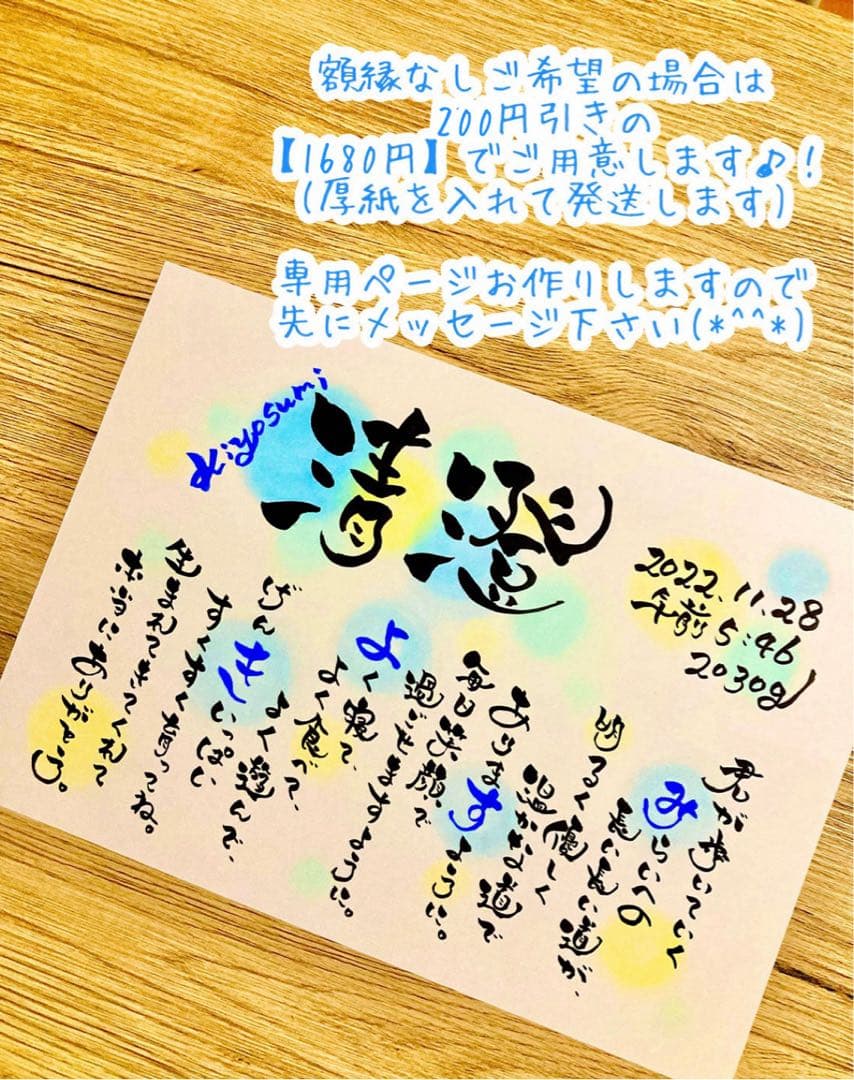 額縁なしご希望の場合は
200円引きの
【1680円】でご用意します♪！
(厚紙を入れて発送します)
専用ページお作りしますので
先にメッセージ下さい(*^^*)
kiyosumi
清澄
2022.11.28
午前5:46
2030g
君が歩いていく
みらいへの
長い長い道が、
明るく優しく
温かな道で
ありますように。
毎日笑顔で
過ごせますように。
よく寝て、
よく食べて、
よく遊んで、
げんきいっぱい
すくすく育ってね。
生まれてきてくれて
本当にありがとう。